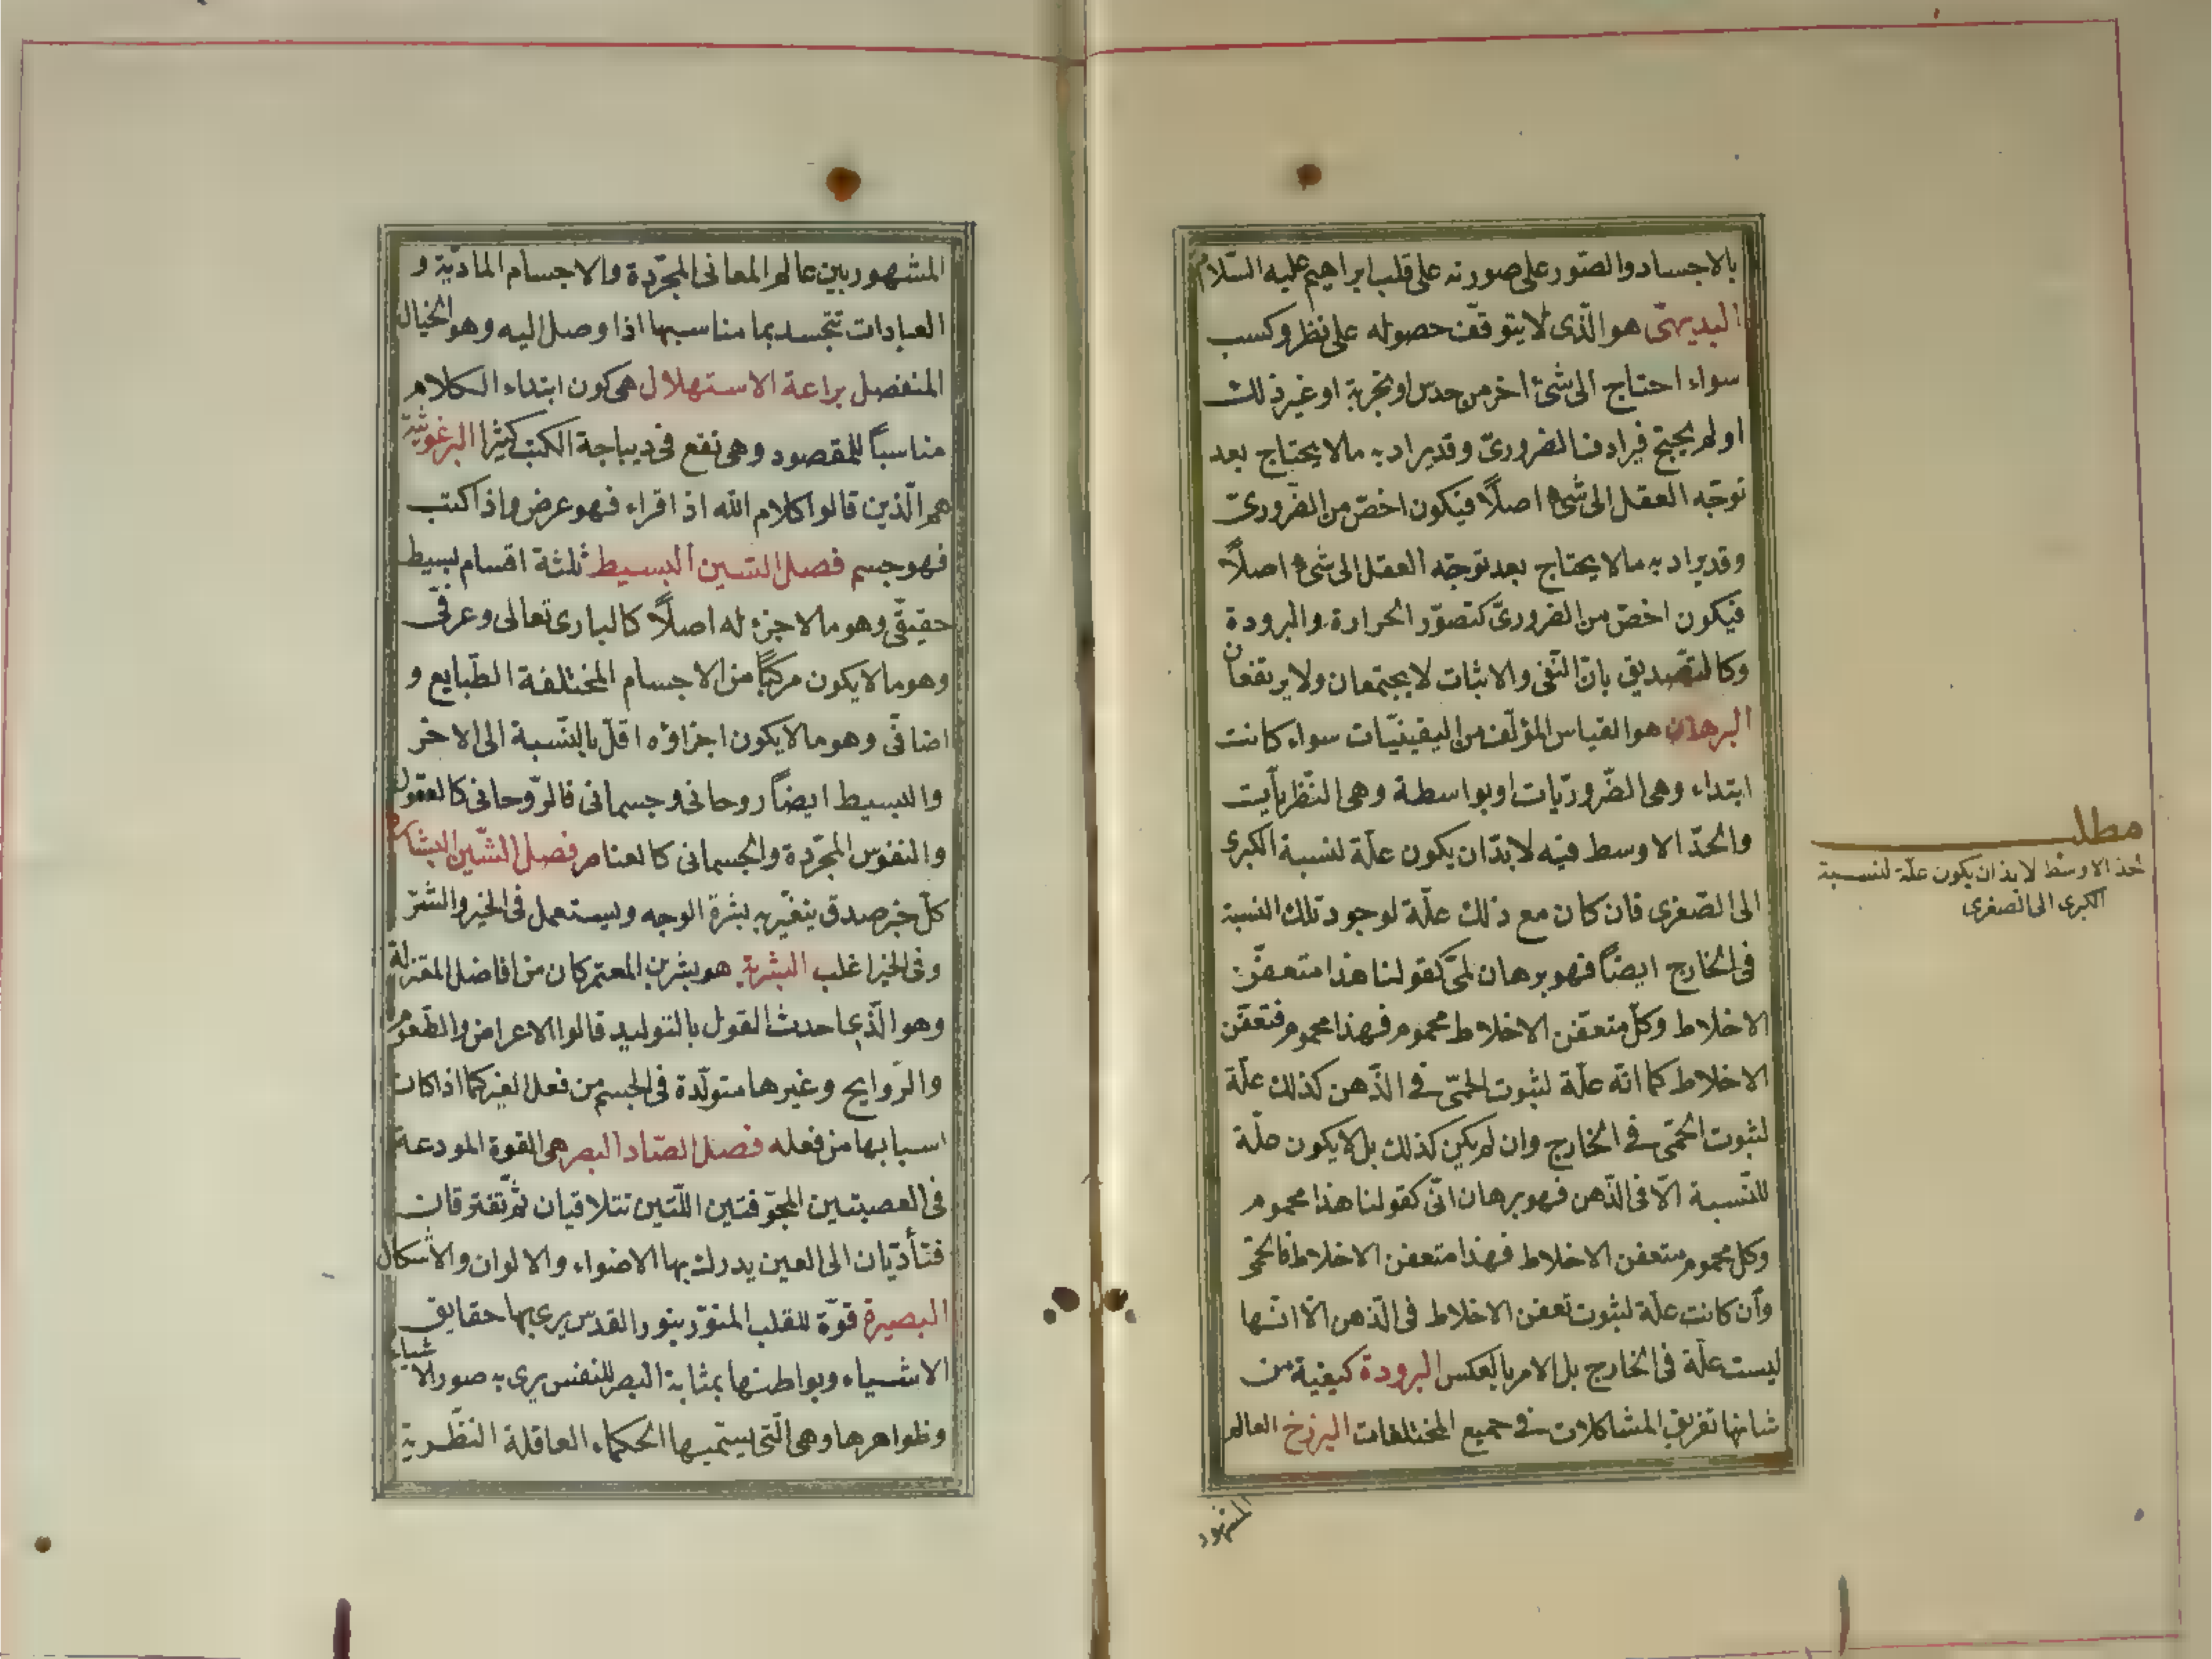 بالاجساد والصور على صورته على قلب ابراهيم عليه السلام
البديهى هو الذى لا يتوقف حصوله على نظر وكسب
سواء احتاج الى شئ اخر من حدس او تجربة او غير ذلك
او لم يحتج فيرادف الضرورى وقد يراد به ما لا يحتاج بعد
توجه العقل الى شئ اصلاً فيكون اخص من الضرورى
وقد يراد به ما لا يحتاج بعد توجه العقل الى شئ اصلاً
فيكون اخص من الضرورى كتصور الحرارة والبرودة
وكالتصديق بان النفى والاثبات لا يجتمعان ولا يرتفعان
البرهان هو القياس المؤلف من اليقينيات سواء كانت
ابتداء وهى الضروريات او بواسطة وهى النظريات
والحد الاوسط فيه لا بد ان يكون علة لنسبة الكبرى
الى الصغرى فان كان مع ذلك علة لوجود تلك النسبة
فى الخارج ايضاً فهو برهان لمى كقولنا هذا متعفن
الاخلاط وكل متعفن الاخلاط محموم فهذا محموم فتعفن
الاخلاط كما انه علة لثبوت الحمى فى الذهن كذلك علة
لثبوت الحمى فى الخارج وان لم يكن كذلك بل لا يكون علة
للنسبة الا فى الذهن فهو برهان انى كقولنا هذا محموم
وكل محموم متعفن الاخلاط فهذا متعفن الاخلاط فالحمى
وان كانت علة لثبوت تعفن الاخلاط فى الذهن الا انها
ليست علة فى الخارج بل الامر بالعكس البرودة كيفية من
شانها تفريق المشاكلات فى جميع المختلفات البرزخ العالم
المشهود
مطلب
حد الاوسط لا بد ان يكون علة لنسبة
الكبرى الى الصغرى
المشهور بين عالم المعانى المجردة والاجسام المادية و
العبادات تتجسد بما مناسبها اذا وصل اليه وهو الخيال
المنفصل براعة الاستهلال هى كون ابتداء الكلام
مناسباً للمقصود وهى تقع فى ديباجة الكتب كثيرا البرغوثية
هم الذين قالوا كلام الله اذ اقراء فهو عرض واذا كتب
فهو جسم فصل السين البسيط ثلثة اقسام بسيط
حقيقى وهو ما لا جزء له اصلاً كالبارى تعالى وعرفى
وهو ما لا يكون مركباً من الاجسام المختلفة الطبايع و
اضافى وهو ما لا يكون اجزاؤه اقل بالنسبة الى الاخر
والبسيط ايضاً روحانى وجسمانى فالروحانى كالعقول
والنفوس المجردة والجسمانى كالعناصر فصل الشين البشارة
كل خبر صدق يتغير به بشرة الوجه ويستعمل فى الخير والشر
وفى الخير اغلب البشرية هو بشر بن المعتمر كان من افاضل المعتزلة
وهو الذى احدث القول بالتوليد قالوا الاعراض والطعوم
والروايح وغيرها متولدة فى الجسم من فعل الغير كما اذا كان
اسبابها من فعله فصل الصاد البصر هى القوة المودعة
فى العصبتين المجوفتين اللتين تتلاقيان ثم تفترقان
فتأديان الى العين يدرك بها الاضواء والالوان والاشكال
البصيرة قوة للقلب المنور بنور القدس يرى بها حقايق
الاشياء وبواطنها بمثابة البصر للنفس يرى به صور الاشياء
وظواهرها وهى التى يسميها الحكماء العاقلة النظرية